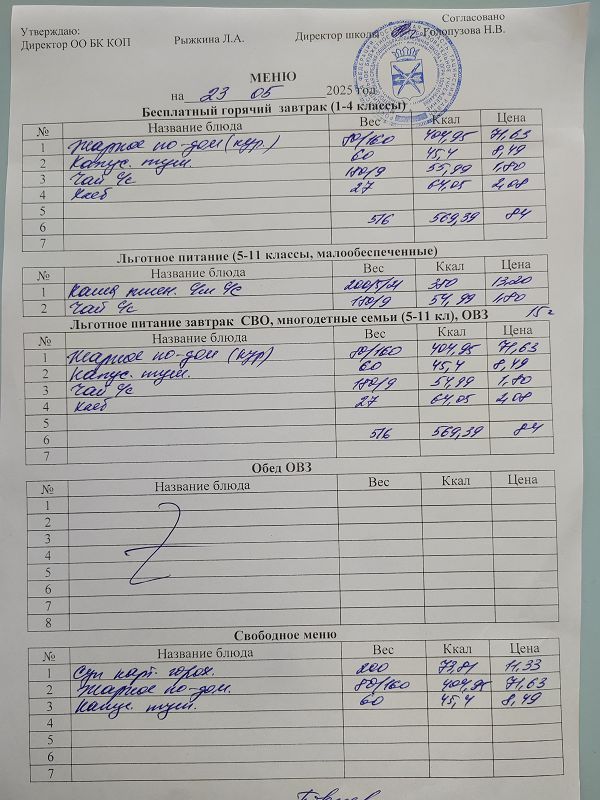 Согласовано
Утверждаю:
Директор ОО БК КОП Рыжкина Л.А. Директор школы Голопузова Н.В.
МЕНЮ
на 23 05 2025 год
Бесплатный горячий завтрак (1-4 классы)
№ Название блюда Вес Ккал Цена
1 Жаркое по-дом (кур.) 80/160 404,95 71,63
2 Капус. туш. 60 45,4 8,49
3 Чай с/с 180/9 55,99 1,80
4 Хлеб 27 64,05 2,08
5
6 516 569,39 84
7
Льготное питание (5-11 классы, малообеспеченные)
№ Название блюда Вес Ккал Цена
1 Каша пшен. 350 13.20
2 Чай с/с 180/9 54,99 1.80
Льготное питание завтрак СВО, многодетные семьи (5-11 кл), ОВЗ
№ Название блюда Вес Ккал Цена
1 Жаркое по-дом (кур) 80/160 404,95 71,63
2 Капус. туш. 60 45,4 8,49
3 Чай с/с 180/9 54,99 1,80
4 Хлеб 27 64,05 2,08
5
6 516 569,39 84
7
Обед ОВЗ
№ Название блюда Вес Ккал Цена
1
2
3
4
5
6
7
8
Свободное меню
№ Название блюда Вес Ккал Цена
1 Суп карт. горох. 200 73,81 11.33
2 Жаркое по-дом. 80/160 404,95 71,63
3 Капус. туш. 60 45,4 8,49
4
5
6
7